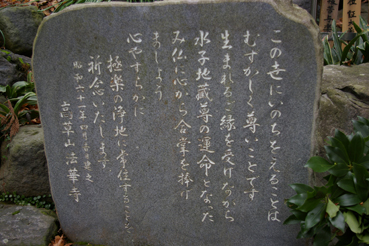 この世にいのちをえることは
むずかしく尊いことです
生まれるご縁を受けながら
水子地蔵尊の運命となった
み仏に心から合掌を捧げ
ましょう
心やすらかに
極楽の浄地に常住することを
祈念いたします
昭和六十一年
高草山 法華寺